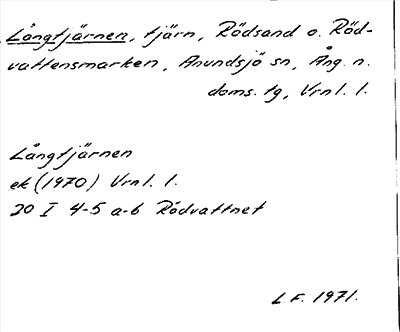 Långtjärnen, tjärn, Rödsand o. Röd-
vattensmarken, Anundsjö sn, Ång. n.
doms. tg, Vrnl. l.
Långtjärnen
ek (1970) Vrnl. l.
20 I 4-5 a-b Rödvattnet
L F. 1971.